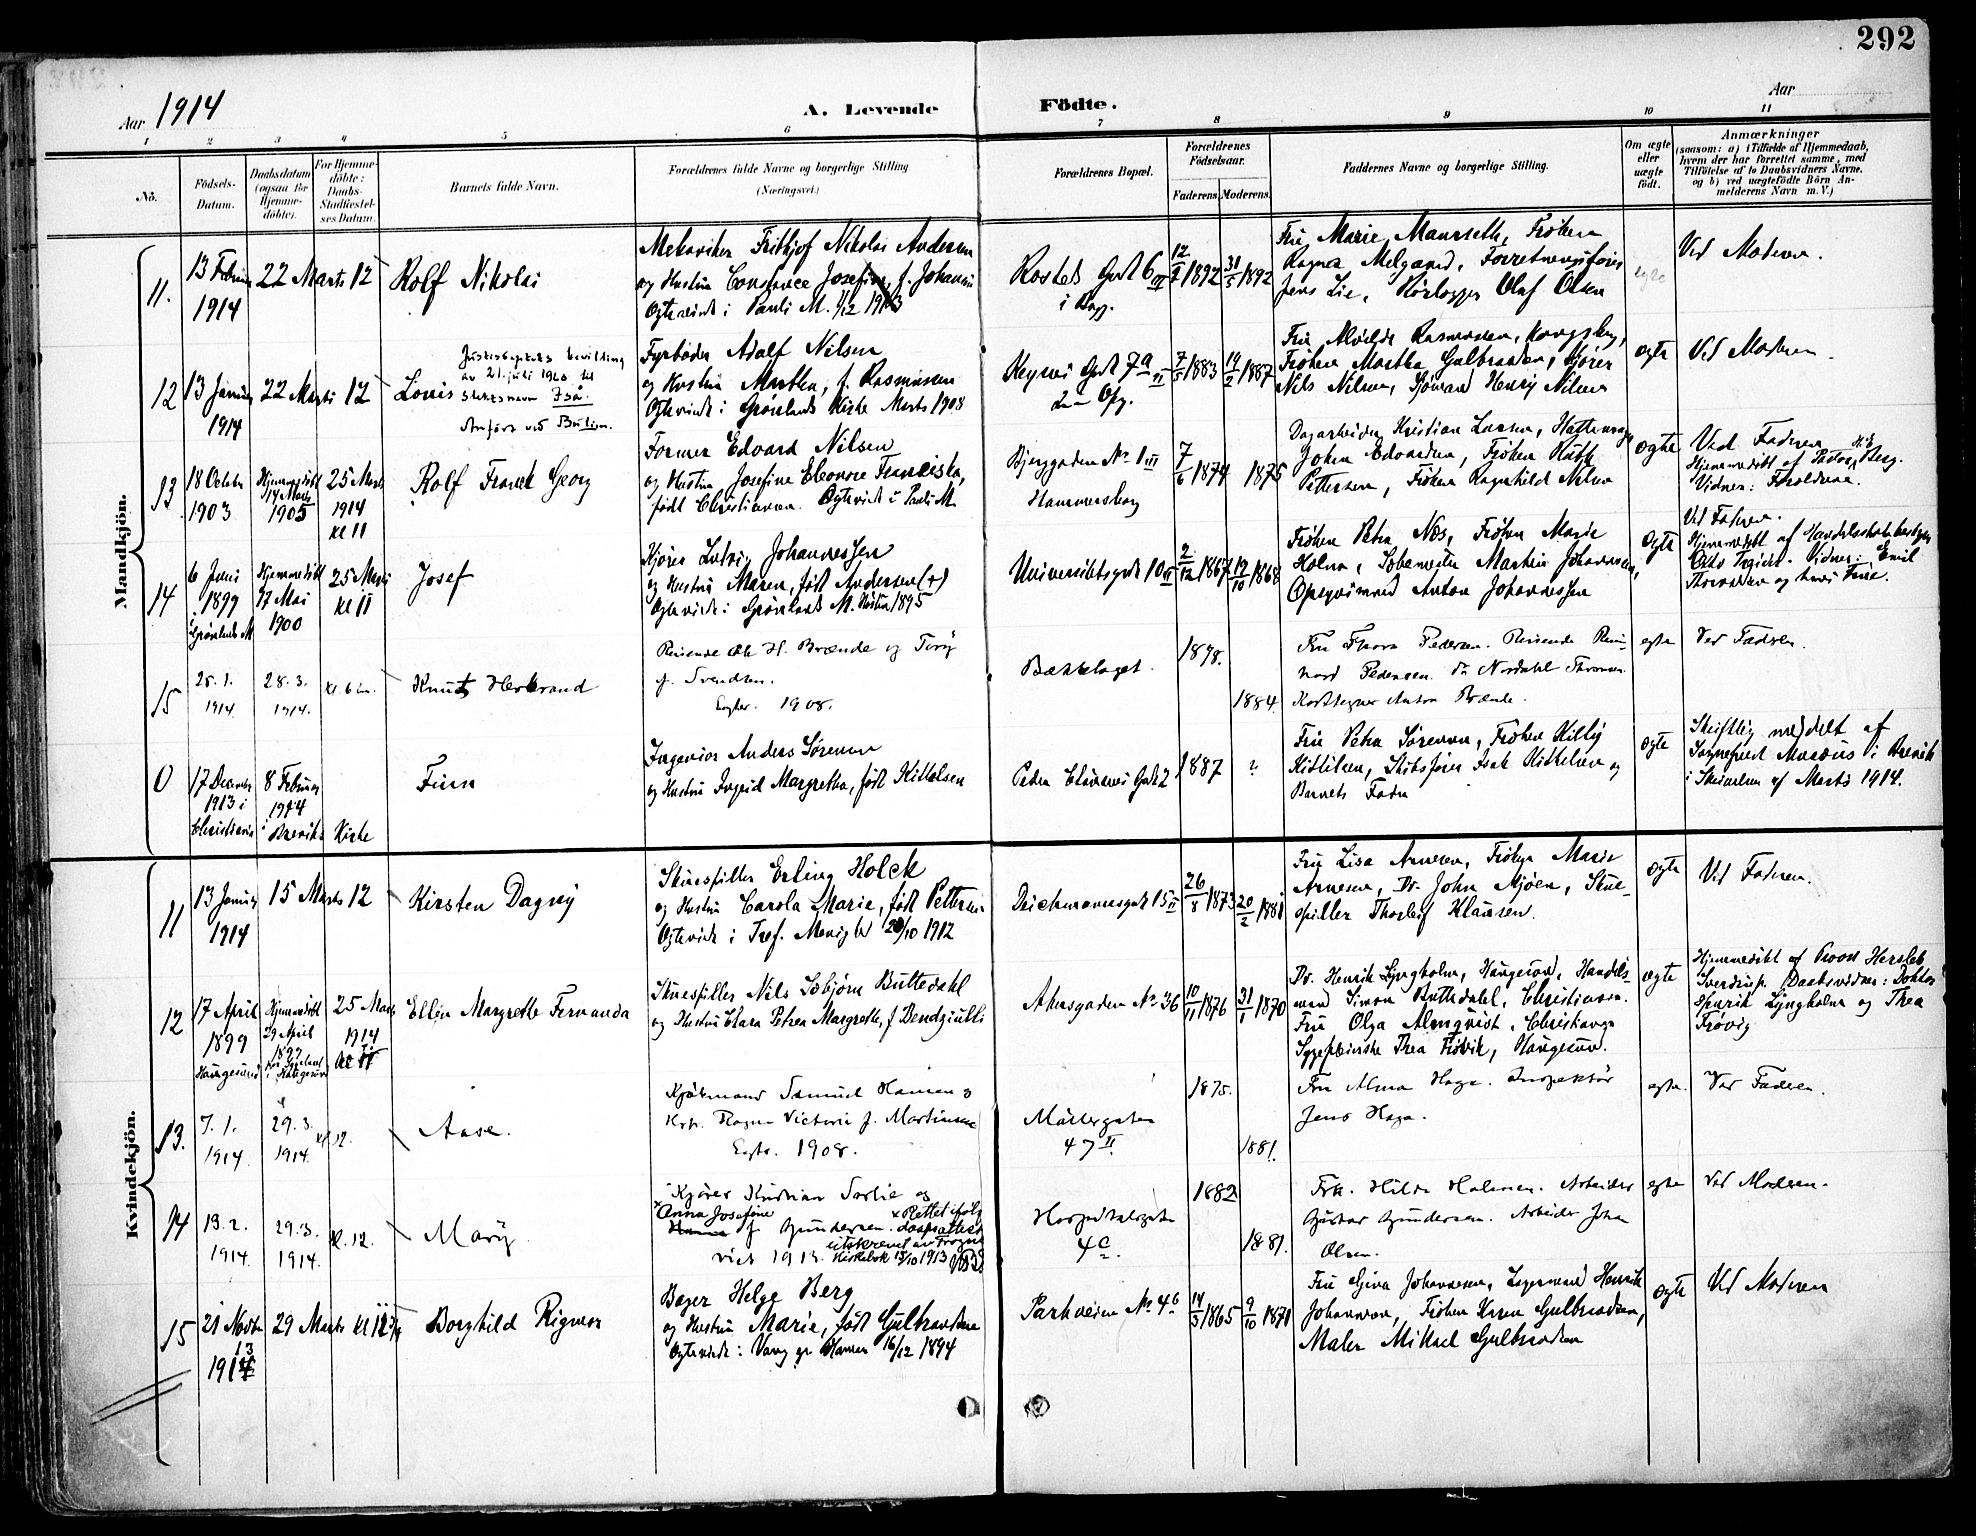 292
Aar 1914
A. Levende Födte.
Aar
1 2 3 4 5 6 7 8 9 10 11
No.
Födsels-Datum.
Daabsdatum (ogsaa for Hjemme-döbte).
For Hjemme-döbte: Daabs-Stadfæstel-ses Datum.
Barnets fulde Navn.
Forældrenes fulde Navne og borgerlige Stilling
(Næringsvei.)
Forældrenes Bopæl.
Forældrenes Födselsaar.
Faderens. Moderens.
Faddernes Navne og borgerlige Stilling.
Om ægte eller uægte födt.
Anmærkninger
(saasom: a) i Tilfælde af Hjemmedaab,
hvem der har forrettet samme, med
Tilföielse af to Daabsvidners Navne.
og b) ved uægtefödte Börn An-
melderens Navn m. V.)
Mandkjön.
11. 13 Februar 1914
22 Marts 12
Rolf Nikolai
Mekaniker Frithjof Nikolai Andersen
og Hustru Constance Josefine, f. Johansen
Ægteviede i Pauli M. 1/12 1913
12/2 1892 31/5 1892
Fru Marie Maurseth, Frøken
Ragna Melgaard, Forretningsfører
Jens Lie, Olaf Olsen
egte
Ved Moderen.
12 13 Januar 1914
22 Marts 12
Louis
Justisdeptets bevilling
av 21. juli 1920 til
slektsnavn Iså.
Fyrbøder Adolf Nilsen
og Hustru Martha, f. Rasmussen
Ægteviede i Grønlands Kirke Marts 1908
7/5 1883 14/2 1887
Frøken Martha Gulbrandsen, Kjører
Nils Nilsen, Sjømand Henry Nilsen
ægte
Ved Moderen.
13 18 October 1903
Hjemmedøbt 14 Marts 1905
25 Marts 1914 kl 11
Rolf Georg
Former Edvard Nilsen
og Hustru Josefine Eleonore Franciska,
født Christiansen. Ægteviede i Pauli M.
Bjerggaden No 1 III
Hammersborg
7/6 1874 1875
Dagarbeider Kristian Larsen,
Johan Edvardsen, Frøken Ruth
Pettersen, Frøken Ragnhild Nilsen
ægte
Ved Faderen
Hjemmedøbt af Pastor Berg.
Vidner: Forældrene.
14 6 Juni 1899
i Grønlands M
Hjemmedøbt 17 Mai 1900
25 Marts kl 11
Josef
Kjører Ludvig Johannessen
og Hustru Maren, født Andersen (+)
Ægteviede i Grønlands M. Høsten 1895
Universitetsgade 10 II
2/12 1867 12/10 1868
Frøken Petra Næs, Frøken Marie
Holm, Købmester Martin Johannessen,
Opsynsmand Anton Johannessen
ægte
Ved Faderen.
15 25.1. 1914.
28.3. 1914.
Kl. 6 em.
Knut Herbrand
Reisende Ole H. Brænde og
f. Svendsen.
Egter. 1908.
Bækkelaget.
1878. 1884.
Fru Thora Pedersen. Reisende
Pedersen. Nordahl
Anton Brænde.
egte
Ved Faderen.
0 17 December 1913 i Christiania
8 Februar 1914
i Breviks Kirke
Finn
Ingeniør Anders Sørensen
og Hustru Ingrid Margrethe, født Kittelsen
Peder Clausens Gade 2
1887 ?
Fru Petra Sørensen, Frøken Kitty
Kittilsen, Skibsfører Isak Kittelsen og
Barnets Fader
ægte
Skriftlig meddelt af
Sognepræst i Brevik
i Skrivelse af Marts 1914.
Kvindekjön.
11 13 Januar 1914
15 Marts 12
Kirsten Dagny
Skuespiller Erling Holck
og Hustru Carola Marie, født Pettersen
Ægteviede i Tref. Menighed 20/10 1912
Deichmannsgade 15 II
26/8 1873 20/2 1881
Fru Lisa Arnesen, Frøken Marie
Arnesen, Dr. John Mjøen, Skue-
spiller Thorleif Klausen.
ægte
Ved Faderen.
12 17 April 1899
Haugesund
Hjemmedøbt 29 April 1899
25 Marts 1914 kl 11
Ellen Margrethe Fernanda
Skuespiller Nils Esbjørn Buttedahl
og Hustru Clara Petrea Margrethe, f Bendgiulli
Akersgaden No 36
10/11 1876 31/1 1870
Dr. Henrik Ljungholm, Haugesund, Handels-
mand Simon Buttedahl, Christiania.
Fru Olga Almqvist, Christiania
Sygepleierske Thea Frøvik, Haugesund.
ægte
Hjemmedøbt af Provst Hersleb
Sverdrup. Daabsvidner: Doktor
Henrik Ljungholm og Thea
Frøvig
13. 7.1. 1914.
29.3. 1914.
Kl. 12.
Aase.
Kjøbmand Samuel Hansen og
Hst. Ragna Victoria f. Martinsen
Egtv. 1908.
Møllergaten
47 II.
1875. 1881.
Fru Alma Haga. Inspektør
Jens Haga.
egte.
Ved Faderen.
14 13.2. 1914.
29.3. 1914.
Kl. 12.
Mary.
Kjører Kristian Sørlie og
x Anna Josefine
f. Gundersen.
x Rettet ifølge
daapsattest
utskrevet av Frogner
kirkebok 15/10 1913
viet 1913.
Hospitalsgaten
4c.
1882 1881.
Frk. Hilda Holmen. Arbeider
Gustav Gundersen. Arbeider Johan
Olsen.
egte
Ved Moderen.
15 21 Novbr 1913
29 Marts kl 12
Borghild Rigmor
Bager Helge Berg
og Hustru Marie, født Gulbrandsen
Ægteviede i Vang pr Hamar 16/12 1894
Parkveien No 4 b
14/3 1865 9/10 1871
Fru Gina Johannesen, Lagermand Henrik
Johannesen, Frøken Karen Gulbrandsen,
Maler Mikael Gulbrandsen
ægte
Ved Moderen